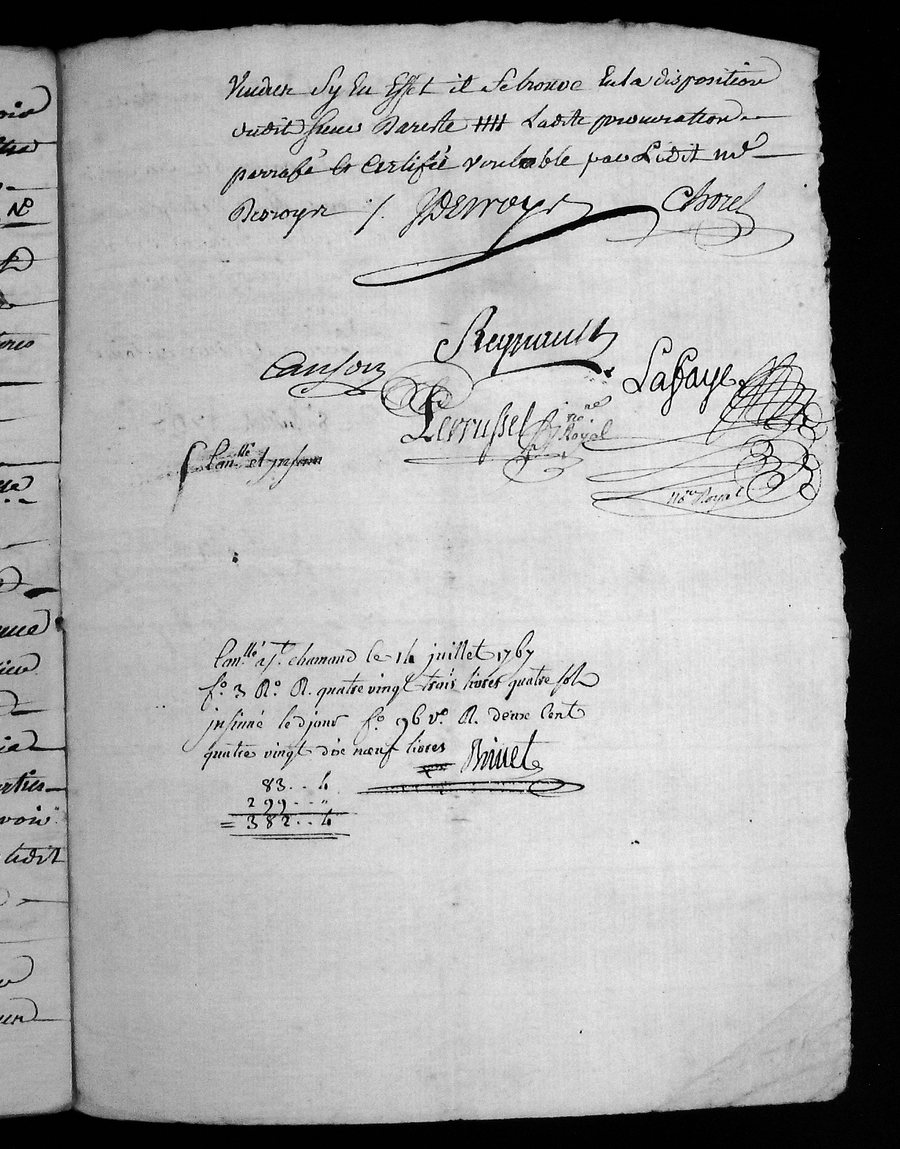 Vindren Sy En Effet il Se trouve En la disposition
dudit Sieur Dareste //// Ladite procuration
parrafé Et Certifié Veritable par Ledit me
Devroye /. JDevroye Chorel
Regnault
Canson
Laffaye
Perrussel nore Royal
nore Royal
Conlle et insinu
Conlle a St chamand le 14 juillet 1767
fo. 3 Ro. R. quatre vingt trois livres quatre sols
insinué le d jour fo. 96 vo. R. deux Cent
quatre vingt dix neuf livres Binet
83 .. 4
299 .. "
= 382 .. 4
oir
No
tures
que
nce
ties
voir
ludit